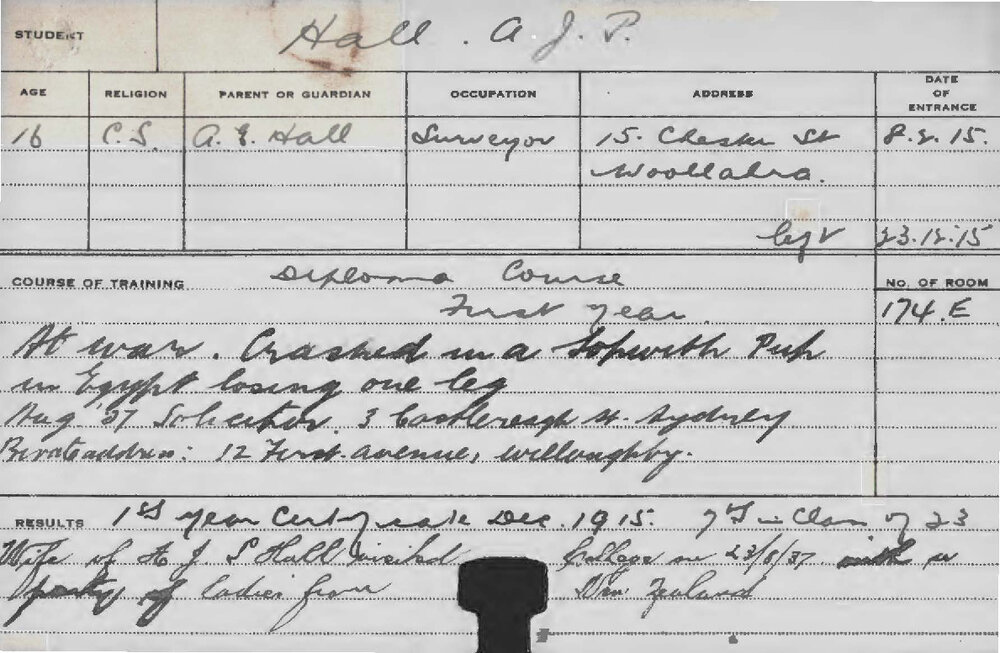 STUDENT Hall. A. J. P.
AGE RELIGION PARENT OR GUARDIAN OCCUPATION ADDRESS DATE OF ENTRANCE
16 C.S. A. E. Hall Surveyor 15. Chester St 8.2.15.
Woollahra.
left 23.12.15
COURSE OF TRAINING Diploma Course NO. OF ROOM
First year. 174.E
At war. Crashed in a Sopwith Pup
in Egypt losing one leg
Aug '37 Solicitor. 3 Castlereagh St. Sydney
Private address: 12 First Avenue, Willoughby.
RESULTS 1st year Certificate Dec. 1915. 7th in Class of 23
Wife of A J P Hall visited College on 23/8/37 with a
party of ladies from New Zealand